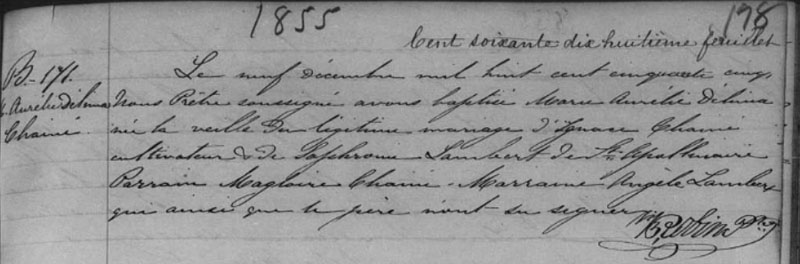 1855
178
Cent soixante dix huitième feuillet
B-171.
M. Aurélie Délima
Chainé
Le neuf décembre mil huit cent cinquante cinq
Nous Prêtre soussigné avons baptisé Marie Aurélie Délima
née la veille du légitime mariage d'Ignace Chainé
cultivateur & de Sophronie Lambert de St. Apollinaire
Parrain Magloire Chainé. Marraine Angèle Lambert
qui ainsi que le père n'ont su signer.
Ptre